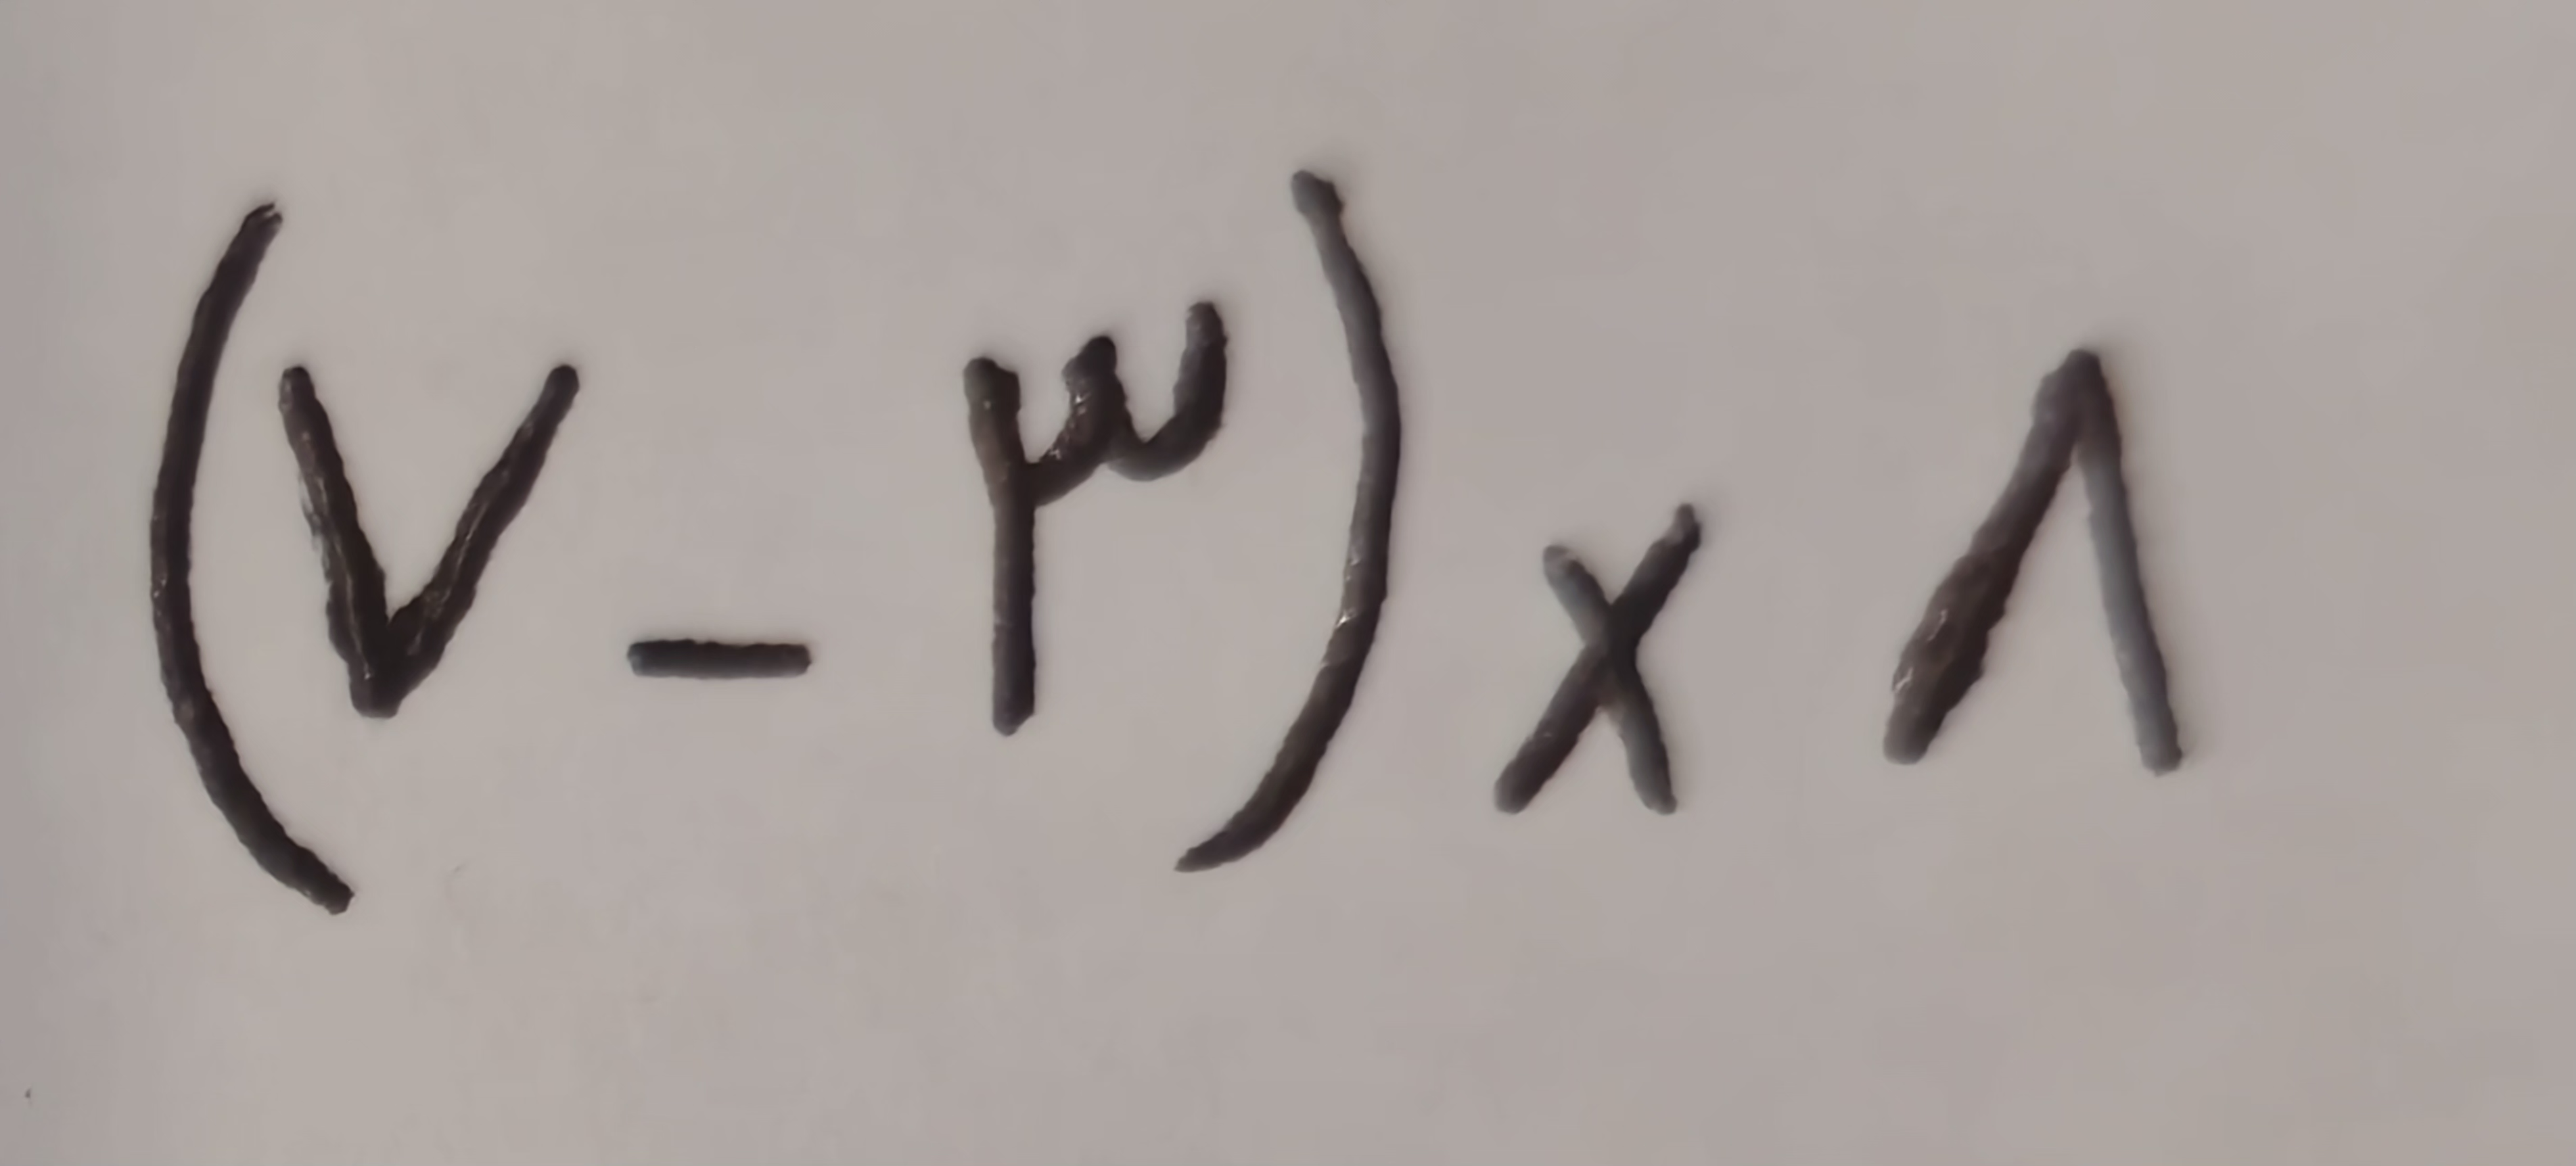 (۷-۳)×۸